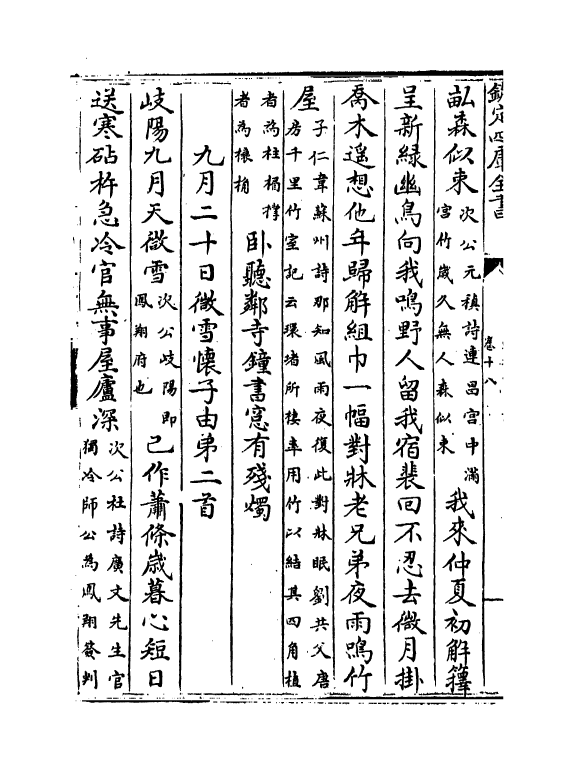 欽定四庫全書
卷十八
畝森似束
次公元稹詩連昌宫中滿
宫竹歲久無人森似束
我來仲夏初解籜
呈新緑幽鳥向我鳴野人留我宿裴回不忍去微月掛
喬木遥想他年歸解組巾一幅對牀老兄弟夜雨鳴竹
屋
子仁韋蘇州詩那知風雨夜復此對牀眠劉共父唐
房千里竹室記云環堵所棲率用竹以結其四角植
者為柱榻撑
者為榱桷
卧聽鄰寺鐘書窓有殘燭
九月二十日微雪懷子由弟二首
岐陽九月天微雪
次公岐陽即
鳳翔府也
已作蕭條歲暮心短日
送寒砧杵急冷官無事屋廬深
次公杜詩廣文先生官
獨冷師公為鳳翔簽判